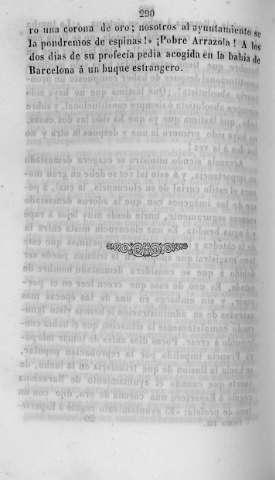 290
ro una corona de oro; nosotros al ayuntamiento se
la pondremos de espinas!» ¡Pobre Arrazola! A los
dos dias de su profecía pedia acogida en la bahia de
Barcelona á un buque estrangero.